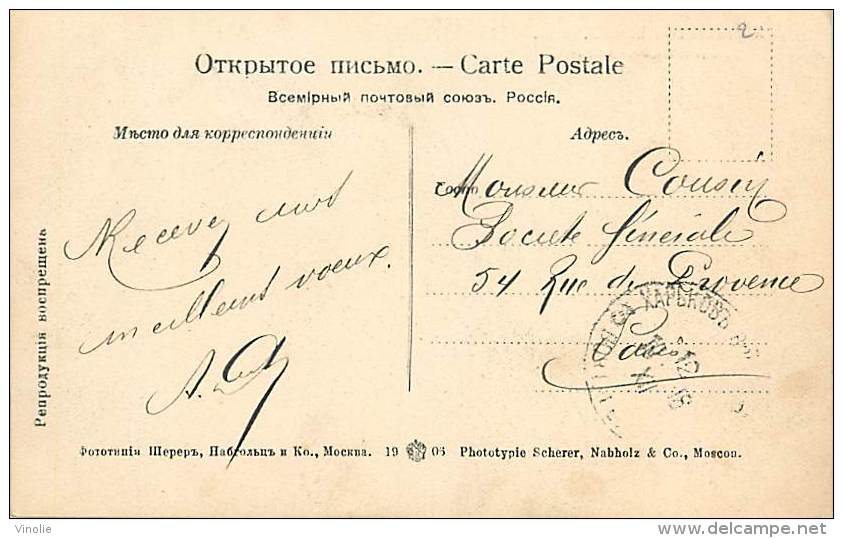 2
Открытое письмо. — Carte Postale
Всемірный почтовый союзъ. Россія.
Мѣсто для корреспонденціи
Адресъ.
Recevez mes
meilleurs voeux.
Monsieur Cousin
Société Générale
54 Rue de Provence
Paris
ХАРЬКОВЪ
Репродукція воспрещена
Фототипія Шереръ, Набгольцъ и Ко., Москва. 19 06 Phototypie Scherer, Nabholz & Co., Moscou.
Vinolie
delcampe.net